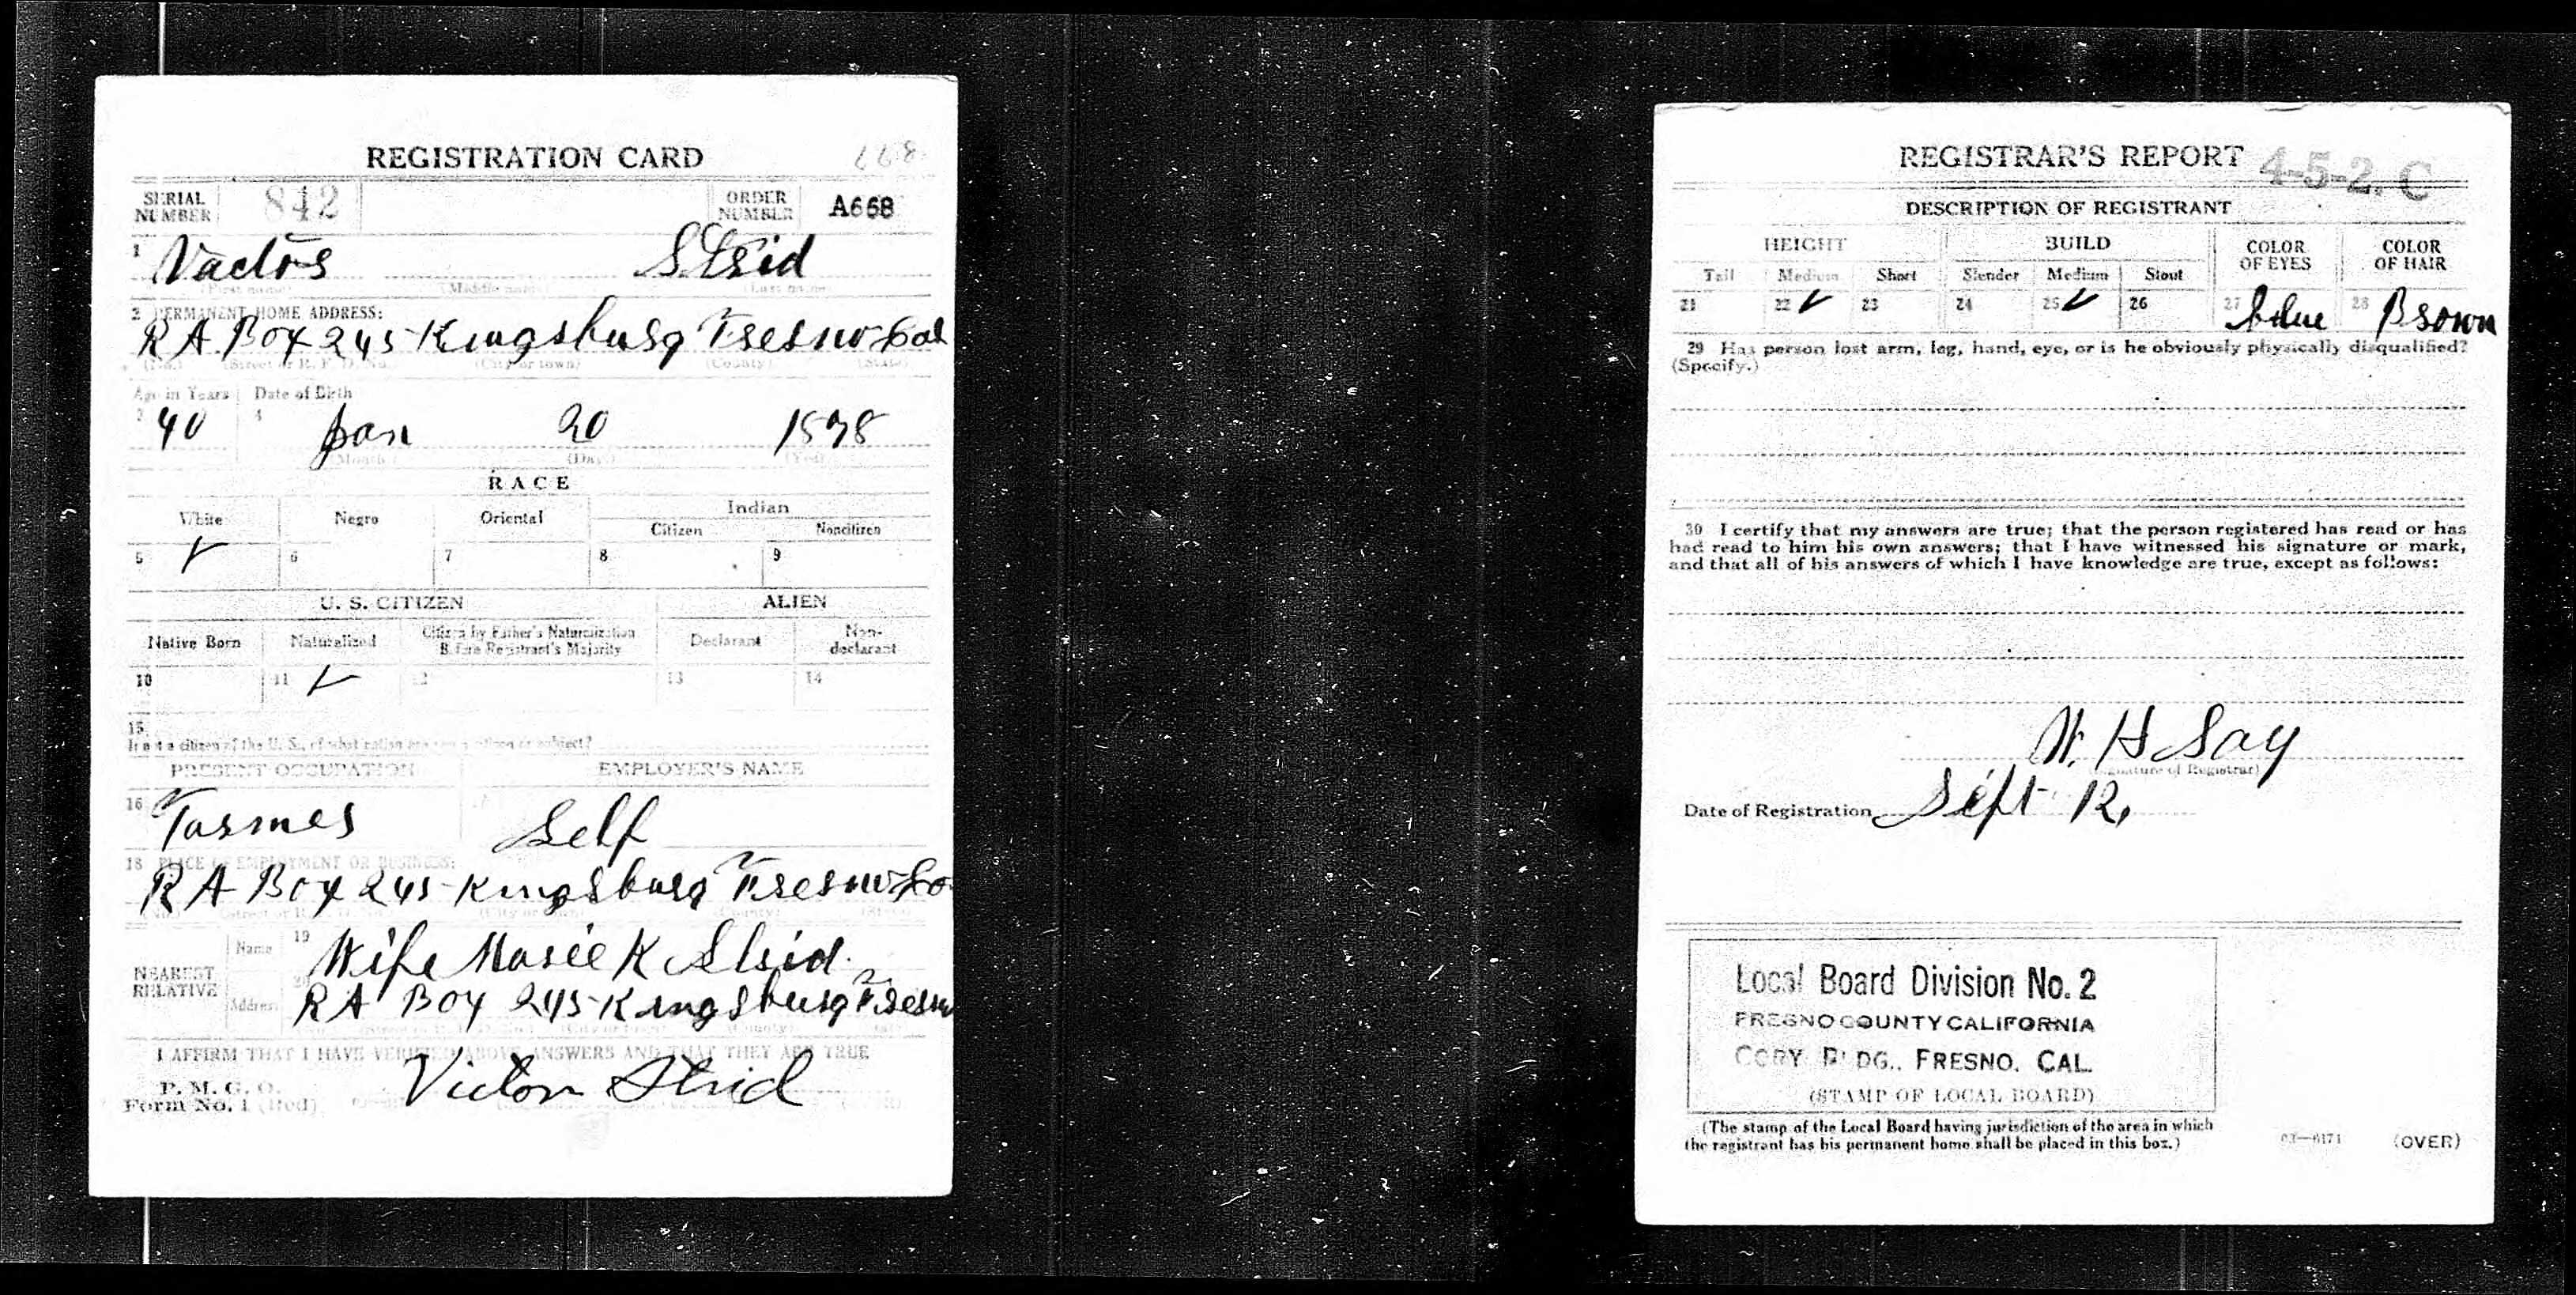 REGISTRATION CARD 668
SERIAL NUMBER 842 ORDER NUMBER A668
1 Victor Strid
(First name) (Middle name) (Last name)
2 PERMANENT HOME ADDRESS:
R A Box 245 Kingsburg Fresno Cal
(No.) (Street or R. F. D. No.) (City or town) (County) (State)
Age in Years Date of Birth
3 40 4 Jan 20 1878
(Month) (Day) (Year)
RACE
White Negro Oriental Indian
Citizen Noncitizen
5 ✓ 6 7 8 9
U. S. CITIZEN ALIEN
Native Born Naturalized Citizen by Father's Naturalization Before Registrant's Majority Declarant Non-declarant
10 11 ✓ 12 13 14
15
If not a citizen of the U. S., of what nation are you a citizen or subject?
PRESENT OCCUPATION EMPLOYER'S NAME
16 Farmer 17 Self
18 PLACE OF EMPLOYMENT OR BUSINESS:
R A Box 245 Kingsburg Fresno Co
(No.) (Street or R. F. D. No.) (City or town) (County) (State)
NEAREST RELATIVE
Name 19 Wife Marie K Strid.
Address 20 R A Box 245 Kingsburg Fresno
I AFFIRM THAT I HAVE VERIFIED ABOVE ANSWERS AND THAT THEY ARE TRUE
P. M. G. O.
Form No. 1 (Red) Victor Strid
REGISTRAR'S REPORT 4-5-2. C
DESCRIPTION OF REGISTRANT
HEIGHT BUILD COLOR OF EYES COLOR OF HAIR
Tall Medium Short Slender Medium Stout
21 22 ✓ 23 24 25 ✓ 26 27 blue 28 Brown
29 Has person lost arm, leg, hand, eye, or is he obviously physically disqualified?
(Specify.)
30 I certify that my answers are true; that the person registered has read or has
had read to him his own answers; that I have witnessed his signature or mark,
and that all of his answers of which I have knowledge are true, except as follows:
W. H Say
(Signature of Registrar)
Date of Registration Sept 12,
Local Board Division No. 2
FRESNO COUNTY CALIFORNIA
CORY BLDG., FRESNO, CAL.
(STAMP OF LOCAL BOARD)
(The stamp of the Local Board having jurisdiction of the area in which
the registrant has his permanent home shall be placed in this box.)
03—6171 (OVER)